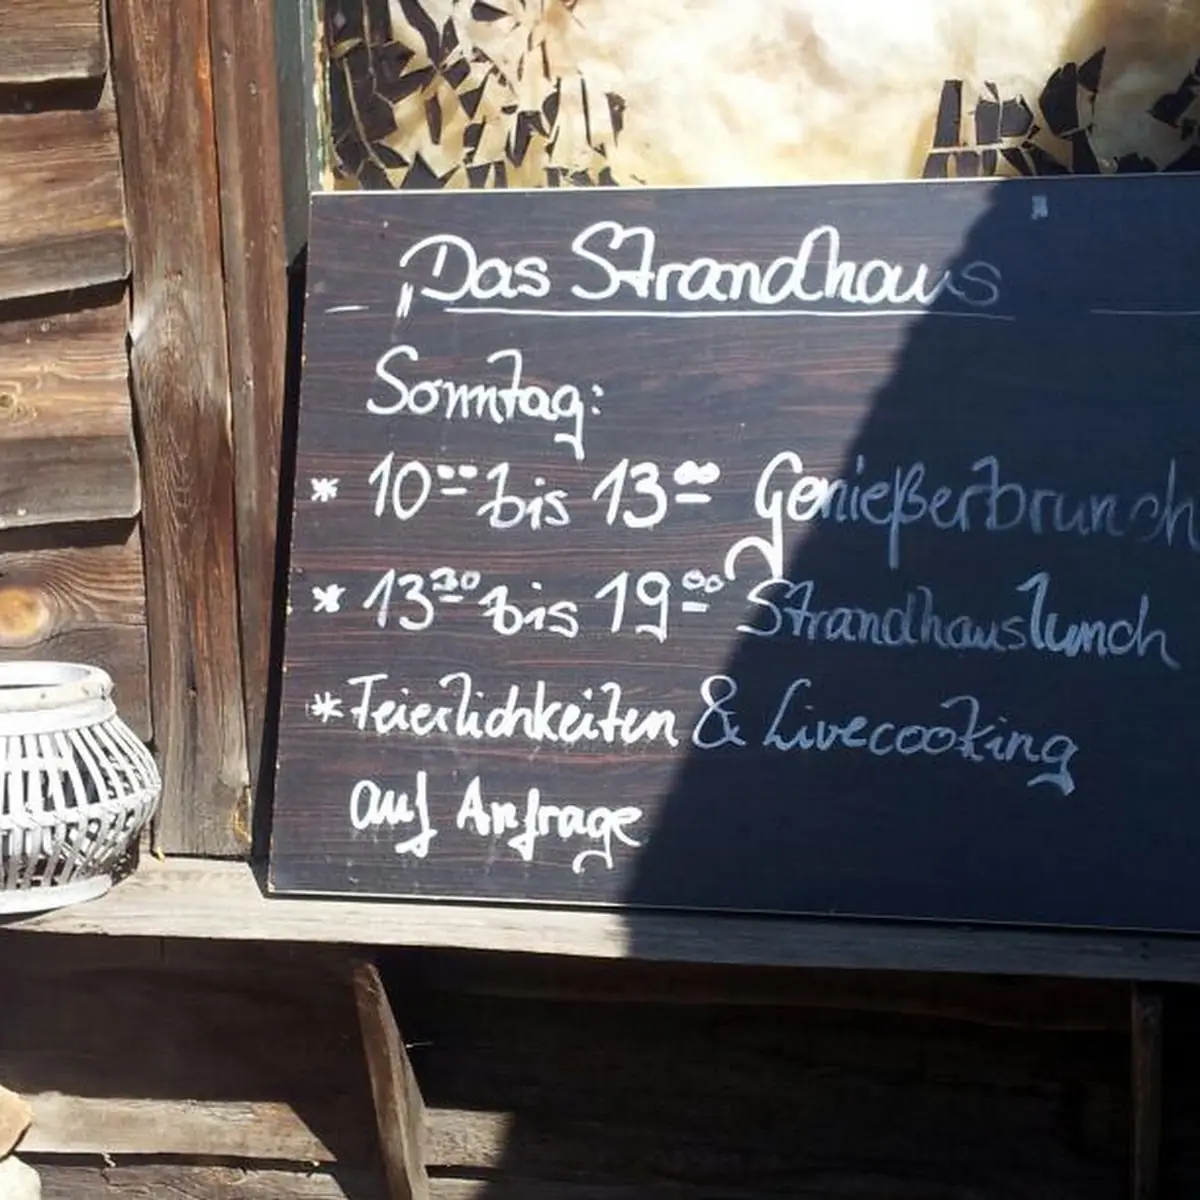 Das Strandhaus
Sonntag:
* 10⁰⁰ bis 13⁰⁰ Genießerbrunch
* 13³⁰ bis 19⁰⁰ Strandhauslunch
* Feierlichkeiten & Livecooking
auf Anfrage